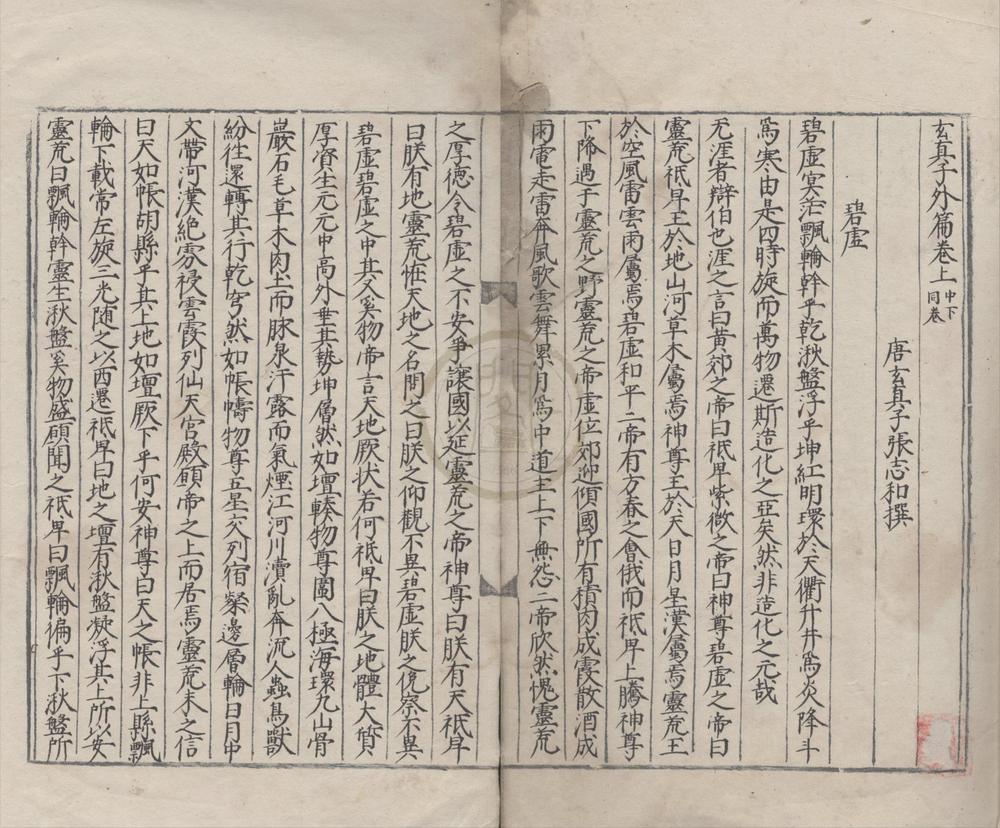 玄真子外篇卷上中下同卷
唐玄真子張志和撰
碧虛
碧虛冥茫飄輪斡乎乾湫盤浮乎坤紅明環於天衢升井爲炎降斗
爲寒由是四時旋而萬物遷斯造化之亞矣然非造化之元哉
无涯者辯伯也涯之言曰黄郊之帝曰祇卑紫微之帝曰神尊碧虛之帝曰
靈荒祇卑王於地山河草木屬焉神尊王於天日月星漢屬焉靈荒王
於空風雷雲雨屬焉碧虛和平二帝有方春之會俄而祇卑上騰神尊
下降遇于靈荒之野靈荒之帝虛位郊迎傾國所有積肉成霞散酒成
雨電走雷奔風歌雲舞累月爲中道主上下無怨二帝欣然愧靈荒
之厚德念碧虛之不安爭讓國以延靈荒之帝神尊曰朕有天祇卑
曰朕有地靈荒恠天地之名問之曰朕之仰觀不異碧虛朕之俛察不異
碧虛碧虛之中其又奚物帝言天地厥狀若何祇卑曰朕之地體大質
厚資生元元中高外垂其勢坤層然如壇輳物尊圖八極海環九山骨
巖石毛草木肉土而脉泉汗露而氣煙江河川瀆亂奔流人蟲鳥獸
紛往還轉其行乾穹然如帳幬物尊五星交列宿粲邊層輪日月中
文帶河漢絶雰祲雲霞列仙天宮殿願帝之上而居焉靈荒未之信
曰天如帳胡縣乎其上地如壇厥下乎何安神尊曰天之帳非上縣飄
輪下載常左旋三光隨之以西遷祇卑曰地之壇有湫盤凝浮其上所以安
靈荒曰飄輪斡靈生湫盤奚物盛願聞之祇卑曰飄輪徧乎下湫盤所